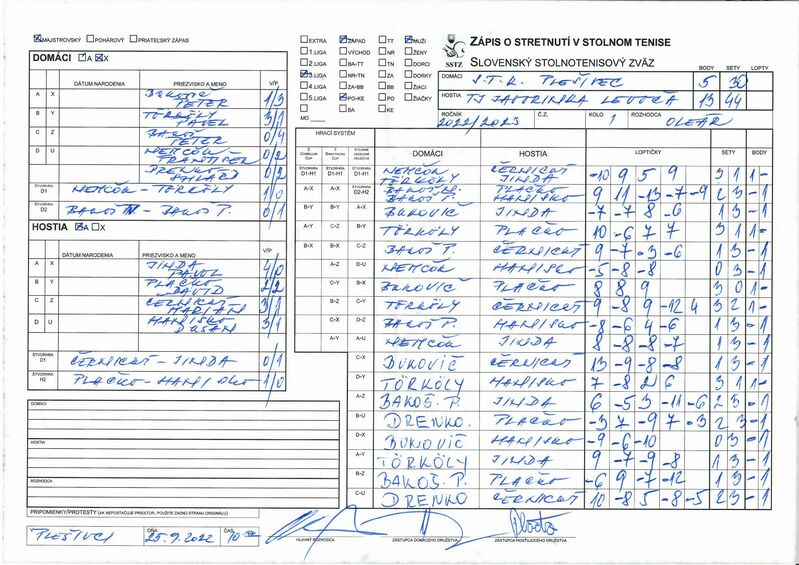 MAJSTROVSKÝ POHÁROVÝ PRIATEĽSKÝ ZÁPAS
DOMÁCI A X
DÁTUM NARODENIA PRIEZVISKO A MENO V/P
A X BUKOVIČ PETER 1/3
B Y TÖRKÖLY PAVEL 3/1
C Z BAKOŠ PETER 0/4
D U NEMČOK FRANTIŠEK 0/2
DRENKO 0/2
ŠTVORHRA D1 NEMČOK - TÖRKÖLY 1/0
ŠTVORHRA D2 BAKOŠ - BAKOŠ P. 0/1
HOSTIA A X
DÁTUM NARODENIA PRIEZVISKO A MENO V/P
A X JINDA PAVOL 4/0
B Y PLAČKO DAVID 2/2
C Z ČERNICKÝ MARIÁN 3/1
D U HANISKO DUŠAN 3/1
ŠTVORHRA D1 ČERNICKÝ - JINDA 0/1
ŠTVORHRA H2 PLAČKO - HANISKO 1/0
DOMÁCI
HOSTIA
ROZHODCA
PRIPOMIENKY/PROTESTY (AK NEPOSTAČUJE PRIESTOR, POUŽITE ZADNÚ STRANU ORIGINÁLU)
EXTRA ZÁPAD TT MUŽI
1.LIGA VÝCHOD NR ŽENY
2.LIGA BA-TT TN DORCI
3.LIGA NR-TN ZA DORKY
4.LIGA ZA-BB BB ŽIACI
5.LIGA PO-KE PO ŽIAČKY
BA KE
MO
SSTZ
ZÁPIS O STRETNUTÍ V STOLNOM TENISE
SLOVENSKÝ STOLNOTENISOVÝ ZVÄZ
BODY SETY LOPTY
DOMÁCI S.T.K. PLEŠIVEC 5 30
HOSTIA TJ JAVORINKA LEVOČA 13 44
ROČNÍK 2022/2023 Č.Z. KOLO 1 ROZHODCA OLEÁR
HRACÍ SYSTÉM
DOMÁCI HOSTIA LOPTIČKY SETY BODY
ŠTVORHRA D1-H1 ŠTVORHRA D1-H1 ŠTVORHRA D1-H1 NEMČOK TÖRKÖLY ČERNICKÝ JINDA -10 9 5 9 3 1 1-
A-X A-X ŠTVORHRA D2-H2 BAKOŠ BAKOŠ P. PLAČKO HANISKO 9 11 -13 -7 -9 2 3 -1
B-Y B-Y A-X BUKOVIČ JINDA -7 -7 8 -6 1 3 -1
A-Y C-Z B-Y TÖRKÖLY PLAČKO 10 -6 7 7 3 1 1-
B-X B-X C-Z BAKOŠ P. ČERNICKÝ 9 -7 -3 -6 1 3 -1
A-Z D-U NEMČOK HANISKO -5 -8 -8 0 3 -1
C-X B-X BUKOVIČ PLAČKO 8 8 9 3 0 1-
B-Z C-Y TÖRKÖLY ČERNICKÝ 9 -8 9 -12 4 3 2 1-
C-Y BAKOŠ P. HANISKO -8 -6 4 -6 1 3 -1
A-Y A-U NEMČOK JINDA 8 -8 -8 -7 1 3 -1
C-X BUKOVIČ ČERNICKÝ 13 -9 -8 -8 1 3 -1
D-Y TÖRKÖLY HANISKO 7 -8 2 6 3 1 1-
A-Z BAKOŠ. P. JINDA 6 -5 3 -11 -6 2 3 -1
B-U DRENKO PLAČKO -3 7 -9 7 -3 2 3 -1
D-X BUKOVIČ HANISKO -9 -6 -10 0 3 -1
A-Y TÖRKÖLY JINDA 9 -7 -9 -8 1 3 -1
B-Z BAKOŠ. P. PLAČKO -6 9 -7 -12 1 3 -1
C-U DRENKO ČERNICKÝ 10 -8 5 -8 -5 2 3 -1
V PLEŠIVCI DŇA 25.9.2022 ČAS 10
HLAVNÝ ROZHODCA ZÁSTUPCA DOMÁCEHO DRUŽSTVA ZÁSTUPCA HOSŤUJÚCEHO DRUŽSTVA